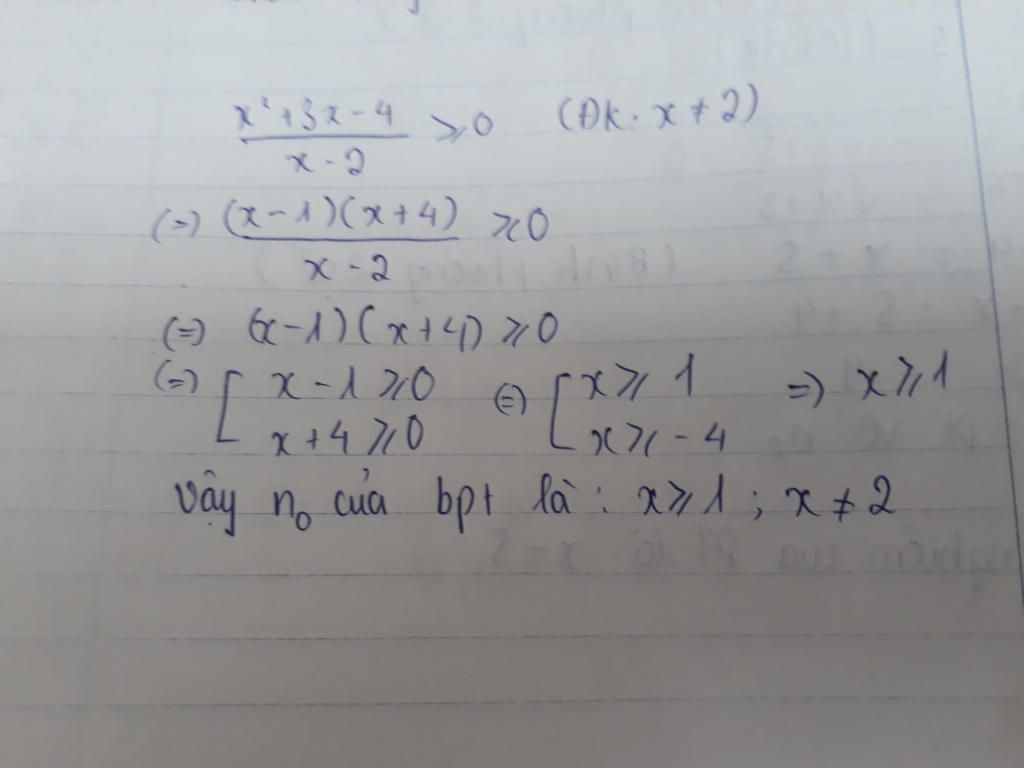 x²+3x-4 / x-2 ⩾0 (ĐK: x≠2)
(=) (x-1)(x+4) / x-2 ⩾0
(=) (x-1)(x+4) ⩾0
(=) [ x-1⩾0 ; x+4⩾0 (=) [ x⩾1 ; x⩾-4 =) x⩾1
Vậy n₀ của bpt là: x⩾1; x≠2